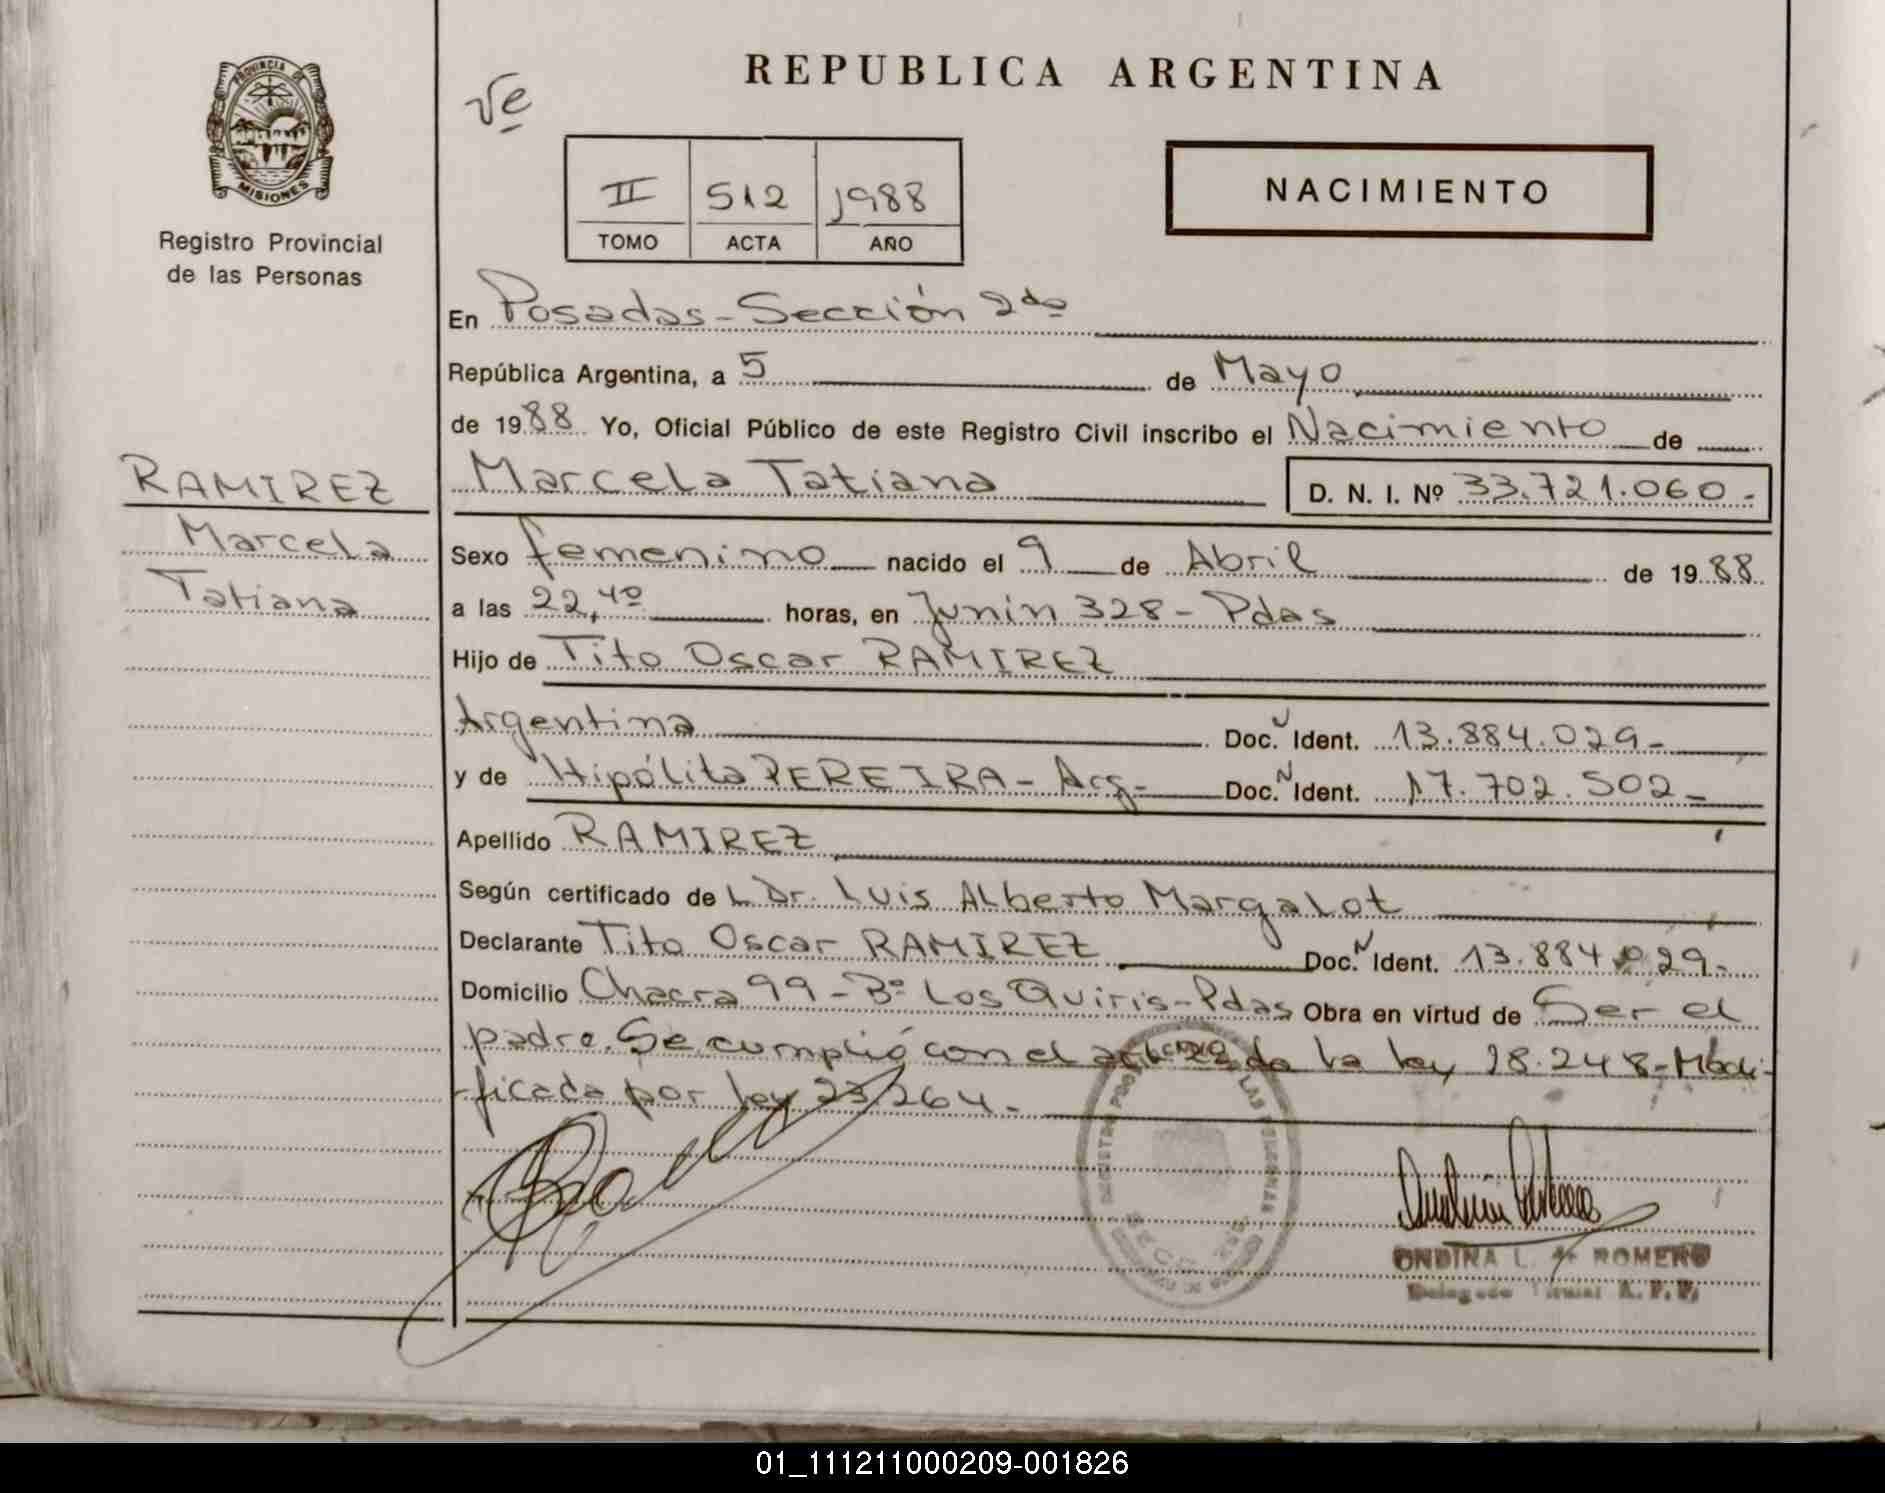 PROVINCIA DE
MISIONES
Registro Provincial
de las Personas
RAMIREZ
Marcela
Tatiana
REPUBLICA ARGENTINA
Ve
II 512 1988
TOMO ACTA AÑO
NACIMIENTO
En Posadas-Sección 2da
República Argentina, a 5 de Mayo
de 1988 Yo, Oficial Público de este Registro Civil inscribo el Nacimiento de
Marcela Tatiana D. N. I. Nº 33.721.060-
Sexo femenino nacido el 9 de Abril de 1988
a las 22,40 horas, en Junin 328- Pdas
Hijo de Tito Oscar RAMIREZ
Argentina Doc. Ident. 13.884.029-
y de Hipólita PEREIRA- Arg- Doc. N Ident. 17.702.502-
Apellido RAMIREZ
Según certificado de L Dr. Luis Alberto Margalot
Declarante Tito Oscar RAMIREZ Doc. N Ident. 13.884.029-
Domicilio Chacra 99-Bº Los Quiris-Pdas Obra en virtud de Ser el
padre. Se cumplió con el de la ley 18.248-Modi-
ficada por ley 23264-
ONDINA L. de ROMERO
01_111211000209-001826